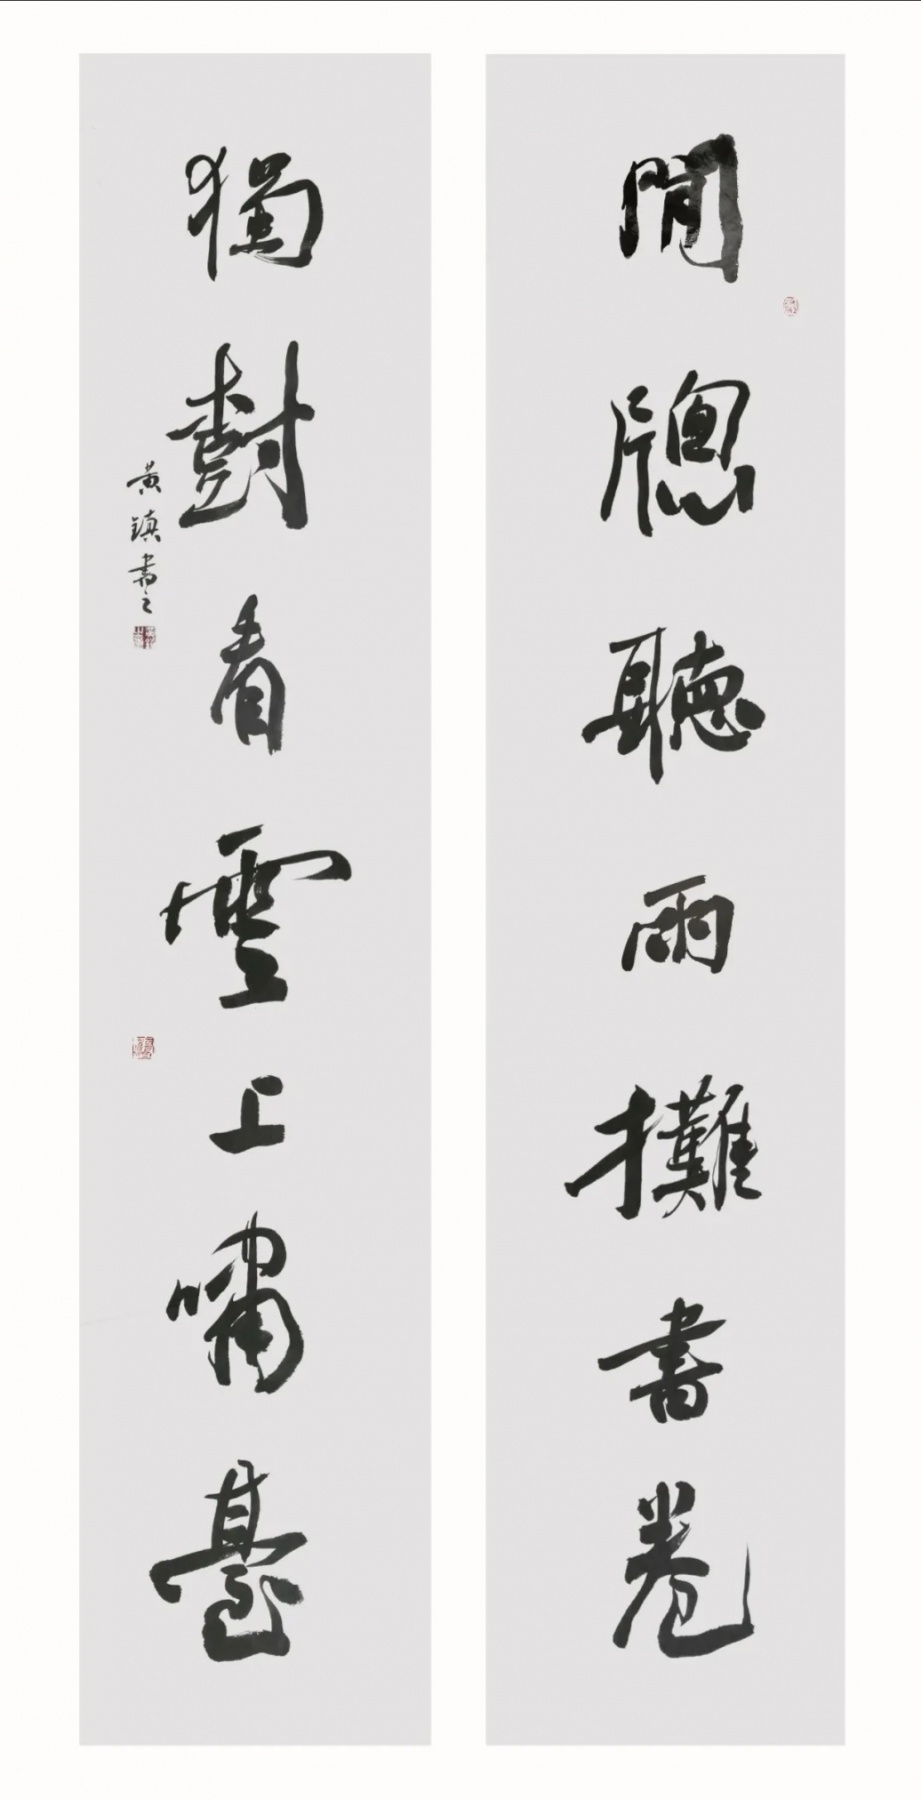 閒牕聽雨攤書卷
獨對看雲上嘯臺
黃鎮書之